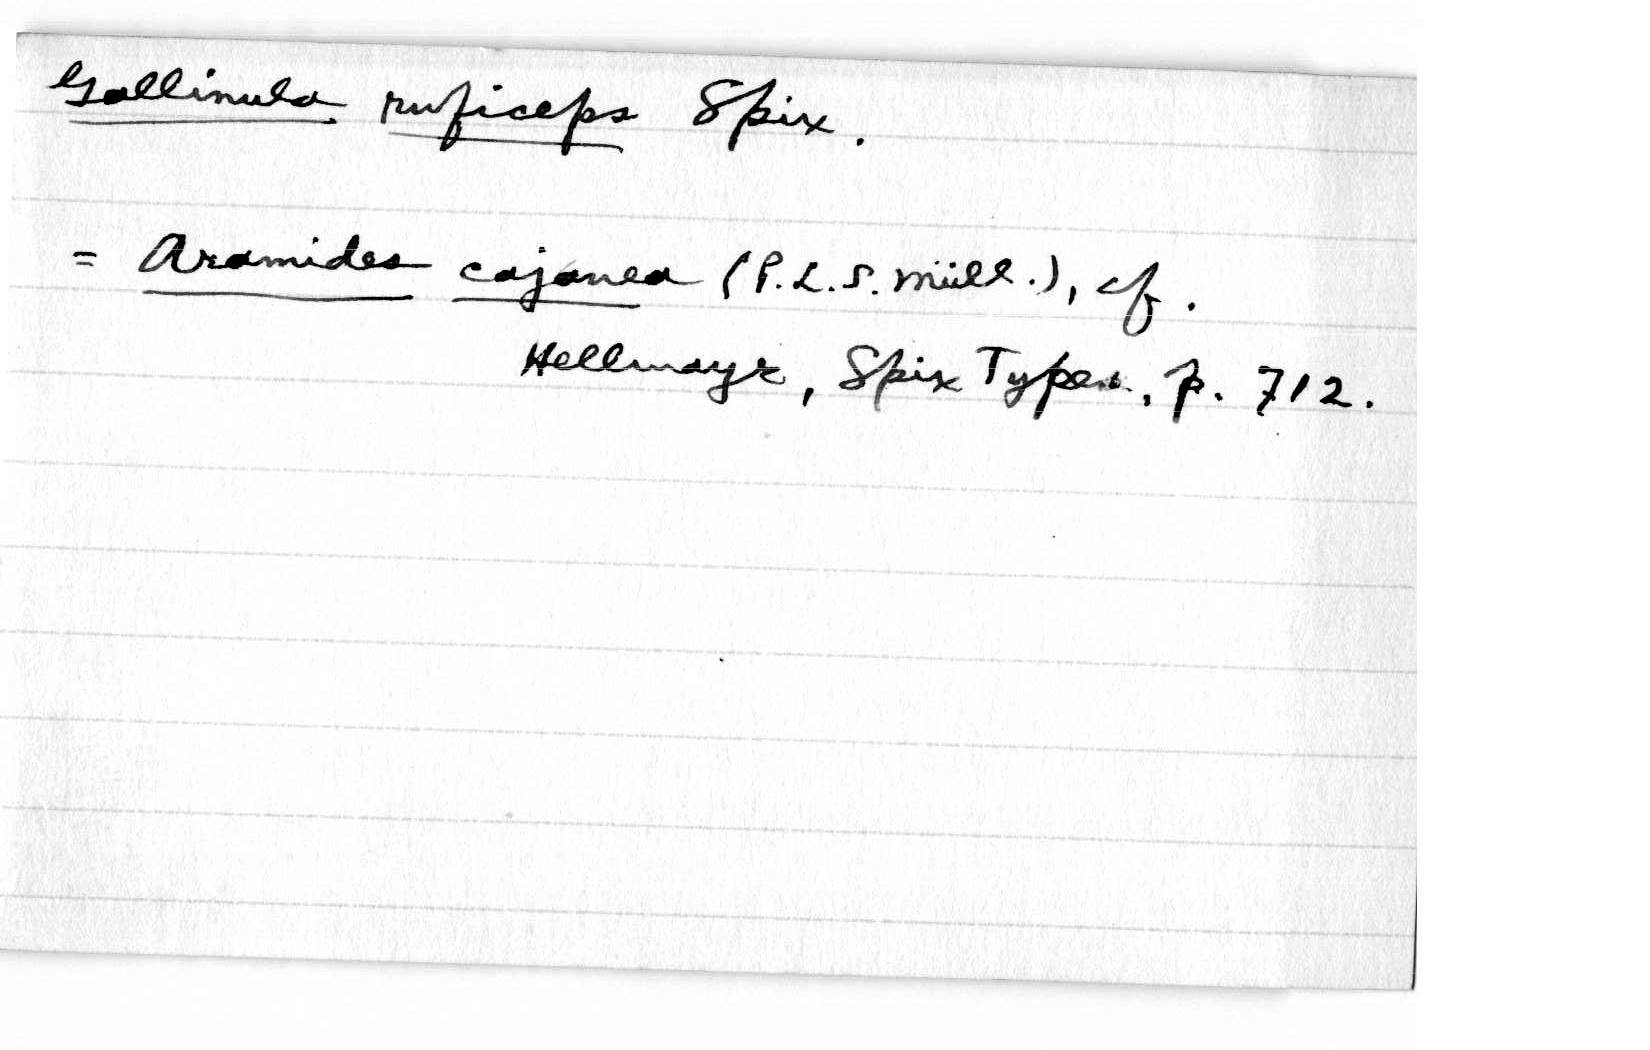 Gallinula ruficeps Spix.
= Aramides cajanea (P.L.S. Müll.), cf.
Hellmayr, Spix Types, p. 712.